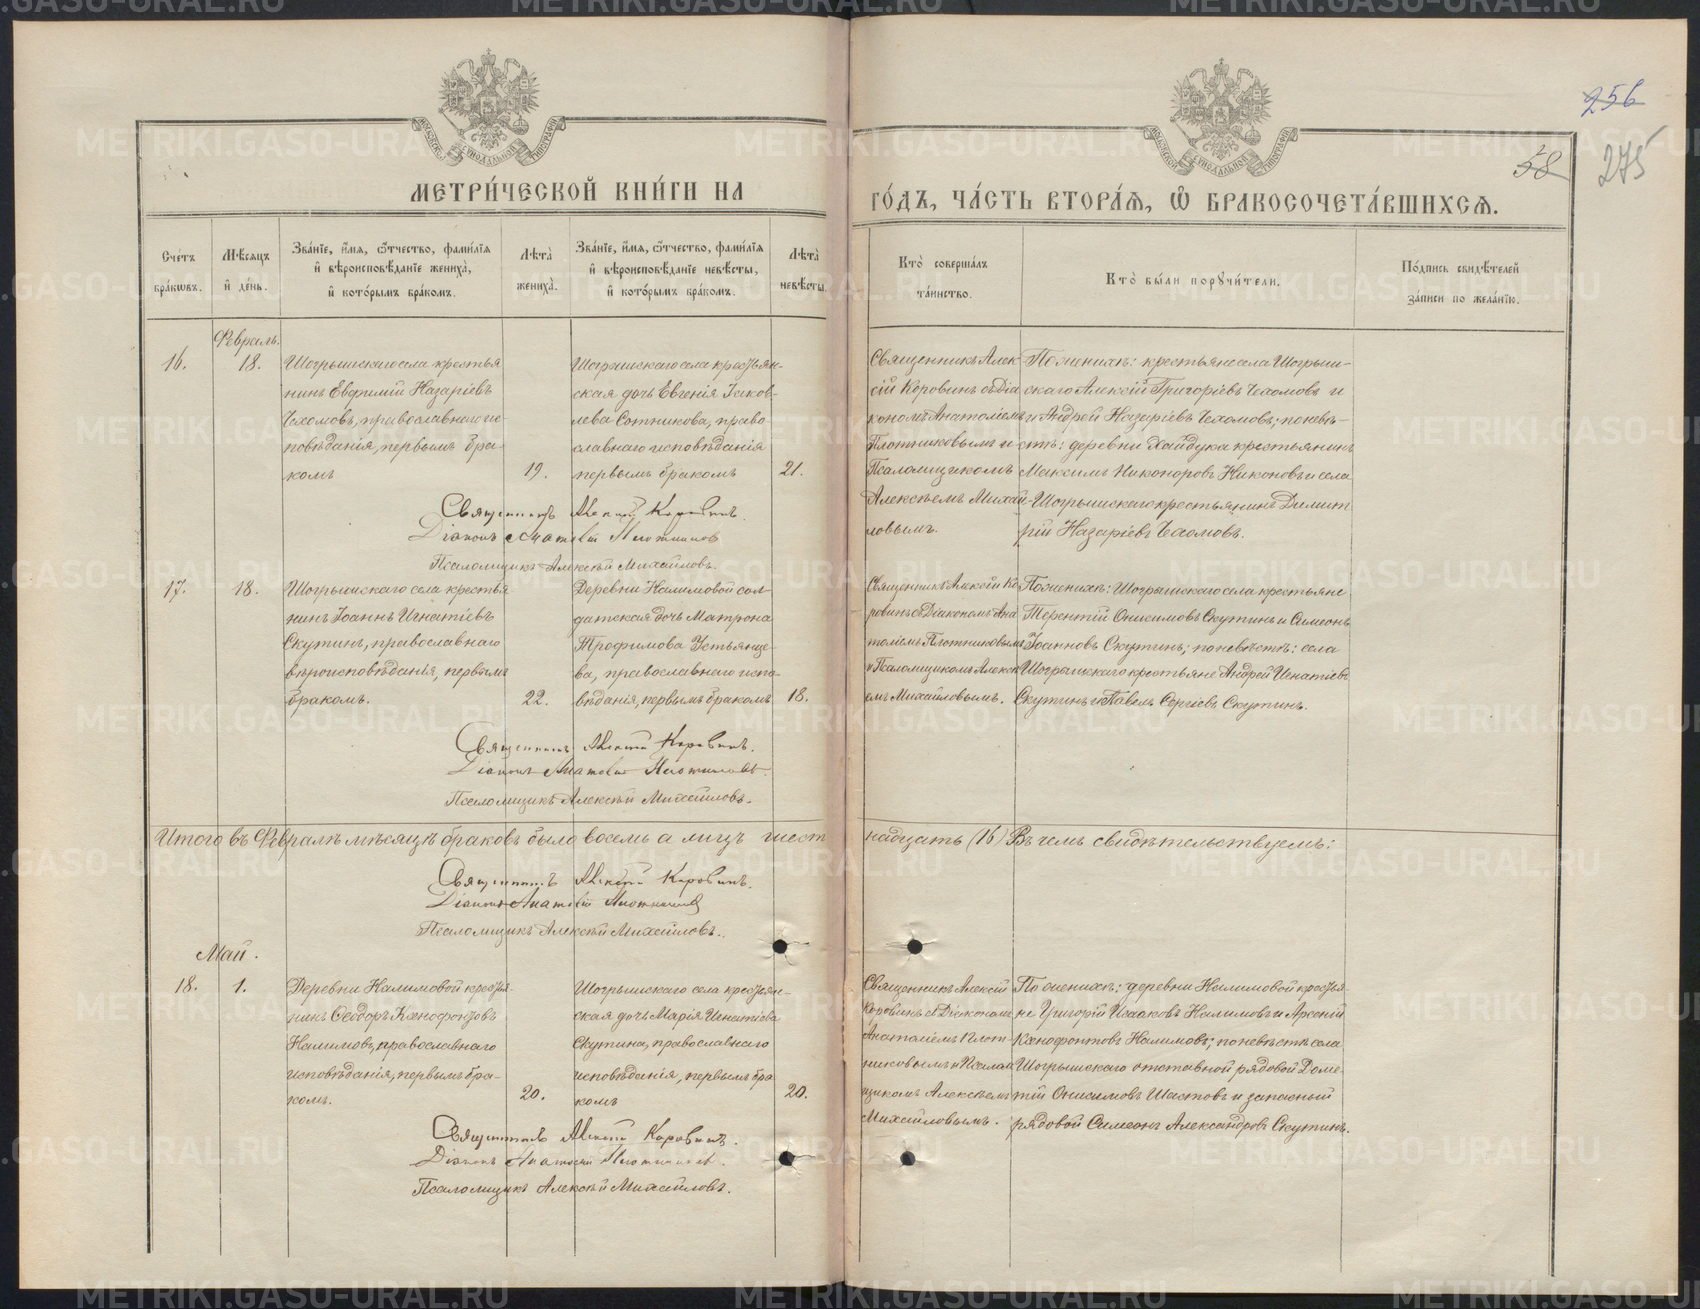 256
58
275
МЕТРИ́ЧЕСКОЙ КНИ́ГИ НА
ГО́ДЪ, ЧА́СТЬ ВТОРА́Ѧ, Ѡ БРАКОСОЧЕТА́ВШИХСѦ.
Сче́тъ бра́кѡвъ.
Мѣ́сяцъ и́ де́нь.
Зва́нїе, и́мѧ, ѻ҆́тчество, фами́лїѧ и҆ вѣроисповѣ́данїе жениха̀, и҆ кото́рымъ бра́комъ.
Лѣта̀ жениха̀.
Зва́нїе, и́мѧ, ѻ҆́тчество, фами́лїѧ и҆ вѣроисповѣ́данїе невѣ́сты, и҆ кото́рымъ бра́комъ.
Лѣта̀ невѣ́сты.
Кто̀ соверша́лъ та́инство.
Кто̀ бы́ли порꙋчи́тели.
По́дпись свидѣ́телей за́писи по жела́нїю.
Февраль.
16.
18.
Шогрышскаго села крестья
нинъ Евфимій Назаріевъ
Чехомовъ, православнаго ис-
повѣданія, первымъ бра-
комъ
19.
Шогрышскаго села крестьян-
ская дочь Евгенія Іаков-
лева Сотникова, право
славнаго исповѣданія
первымъ бракомъ
21.
Священникъ Алек
сій Коровинъ съ Діа
кономъ Анатоліемъ
Плотниковымъ и
Псаломщикомъ
Алексѣемъ Михай-
ловымъ.
По женихѣ: крестьяне села Шогрыш-
скаго Алексій Григоріевъ Чехомовъ и
и Андрей Назаріевъ Чехомовъ; по невѣ-
стѣ: деревни Хайдука крестьянинъ
Максимъ Никоноровъ Никоновъ и села
Шогрышскаго крестьянинъ Димит
рій Назаріевъ Чехомовъ.
Священникъ Алексій Коровинъ.
Діаконъ Анатолій Плотниковъ
Псаломщикъ Алексѣй Михайловъ.
17.
18.
Шогрышскаго села крестья
нинъ Іоаннъ Игнатіевъ
Скутинъ, православнаго
вѣроисповѣданія, первымъ
бракомъ.
22.
Деревни Налимовой сол-
датская дочь Матрона
Трофимова Устьянце-
ва, православнаго испо-
вѣданія, первымъ бракомъ
18.
Священникъ Алексій Ко
ровинъ съ Діакономъ Ана
толіемъ Плотниковымъ
и Псаломщикомъ Алексѣ
емъ Михайловымъ.
По женихѣ: Шогрышскаго села крестьяне
Терентій Онисимовъ Скутинъ и Симеонъ
Іоанновъ Скутинъ; по невѣстѣ: села
Шогрышскаго крестьяне Андрей Игнатіевъ
Скутинъ и Павелъ Сергіевъ Скутинъ.
Священникъ Алексій Коровинъ.
Діаконъ Анатолій Плотниковъ.
Псаломщикъ Алексѣй Михайловъ.
Итого въ Февралѣ мѣсяцѣ браковъ было восемь а лицъ шест
надцать (16) Въ чемъ свидѣтельствуемъ:
Священникъ Алексій Коровинъ.
Діаконъ Анатолій Плотниковъ
Псаломщикъ Алексѣй Михайловъ.
Май.
18.
1.
Деревни Налимовой крестья
нинъ Ѳеодоръ Ксенофонтовъ
Налимовъ, православнаго
исповѣданія, первымъ бра-
комъ.
20.
Шогрышскаго села крестьян-
ская дочь Марія Игнатіева
Скутина, православнаго
исповѣданія, первымъ бра
комъ
20.
Священникъ Алексій
Коровинъ съ Діакономъ
Анатоліемъ Плот-
никовымъ и Псалом
щикомъ Алексѣемъ
Михайловымъ.
По женихѣ: деревни Налимовой крестья
не Григорій Исааковъ Налимовъ и Арсеній
Ксенофонтовъ Налимовъ; по невѣстѣ села
Шогрышскаго отставной рядовой Доме-
тій Онисимовъ Шастовъ и запасный
рядовой Симеонъ Александровъ Скутинъ.
Священникъ Алексій Коровинъ.
Діаконъ Анатолій Плотниковъ.
Псаломщикъ Алексѣй Михайловъ.
METRIKI.GASO-URAL.RU